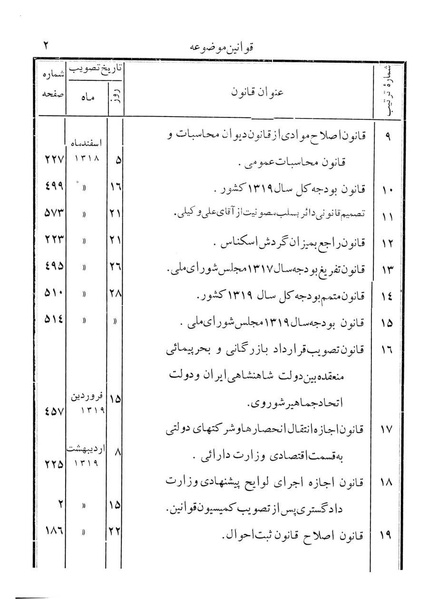 قوانین موضوعه ۲
شمارهٔ ترتیب عنوان قانون تاریخ تصویب شماره صفحه
روز ماه
۹ قانون اصلاح موادی از قانون دیوان محاسبات و اسفندماه
قانون محاسبات عمومی . ۵ ۱۳۱۸ ۲۲۷
۱۰ قانون بودجه کل سال ۱۳۱۹ کشور . ۱۶ » ٤۹۹
۱۱ تصمیم قانونی دائر بسلب مصونیت از آقای علی وکیلی. ۲۱ » ۵۷۳
۱۲ قانون راجع بمیزان گردش اسکناس . ۲۱ » ۲۲۳
۱۳ قانون تفریغ بودجه سال ۱۳۱۷ مجلس شورای ملی. ۲۶ » ٤۹۵
۱٤ قانون متمم بودجه کل سال ۱۳۱۹ کشور. ۲۸ » ۵۱۰
۱۵ قانون بودجه سال ۱۳۱۹ مجلس شورای ملی . » » ۵۱٤
۱۶ قانون تصویب قرارداد بازرگانی و بحرپیمائی
منعقده بین دولت شاهنشاهی ایران و دولت
اتحاد جماهیر شوروی. ۱۵ فروردین ۱۳۱۹ ٤۵۷
۱۷ قانون اجازه انتقال انحصارها و شرکتهای دولتی
به قسمت اقتصادی وزارت دارائی . ۸ اردیبهشت ۱۳۱۹ ۲۲۵
۱۸ قانون اجازه اجرای لوایح پیشنهادی وزارت
دادگستری پس از تصویب کمیسیون قوانین. ۱۵ » ۲
۱۹ قانون اصلاح قانون ثبت احوال. ۲۲ » ۱۸۶